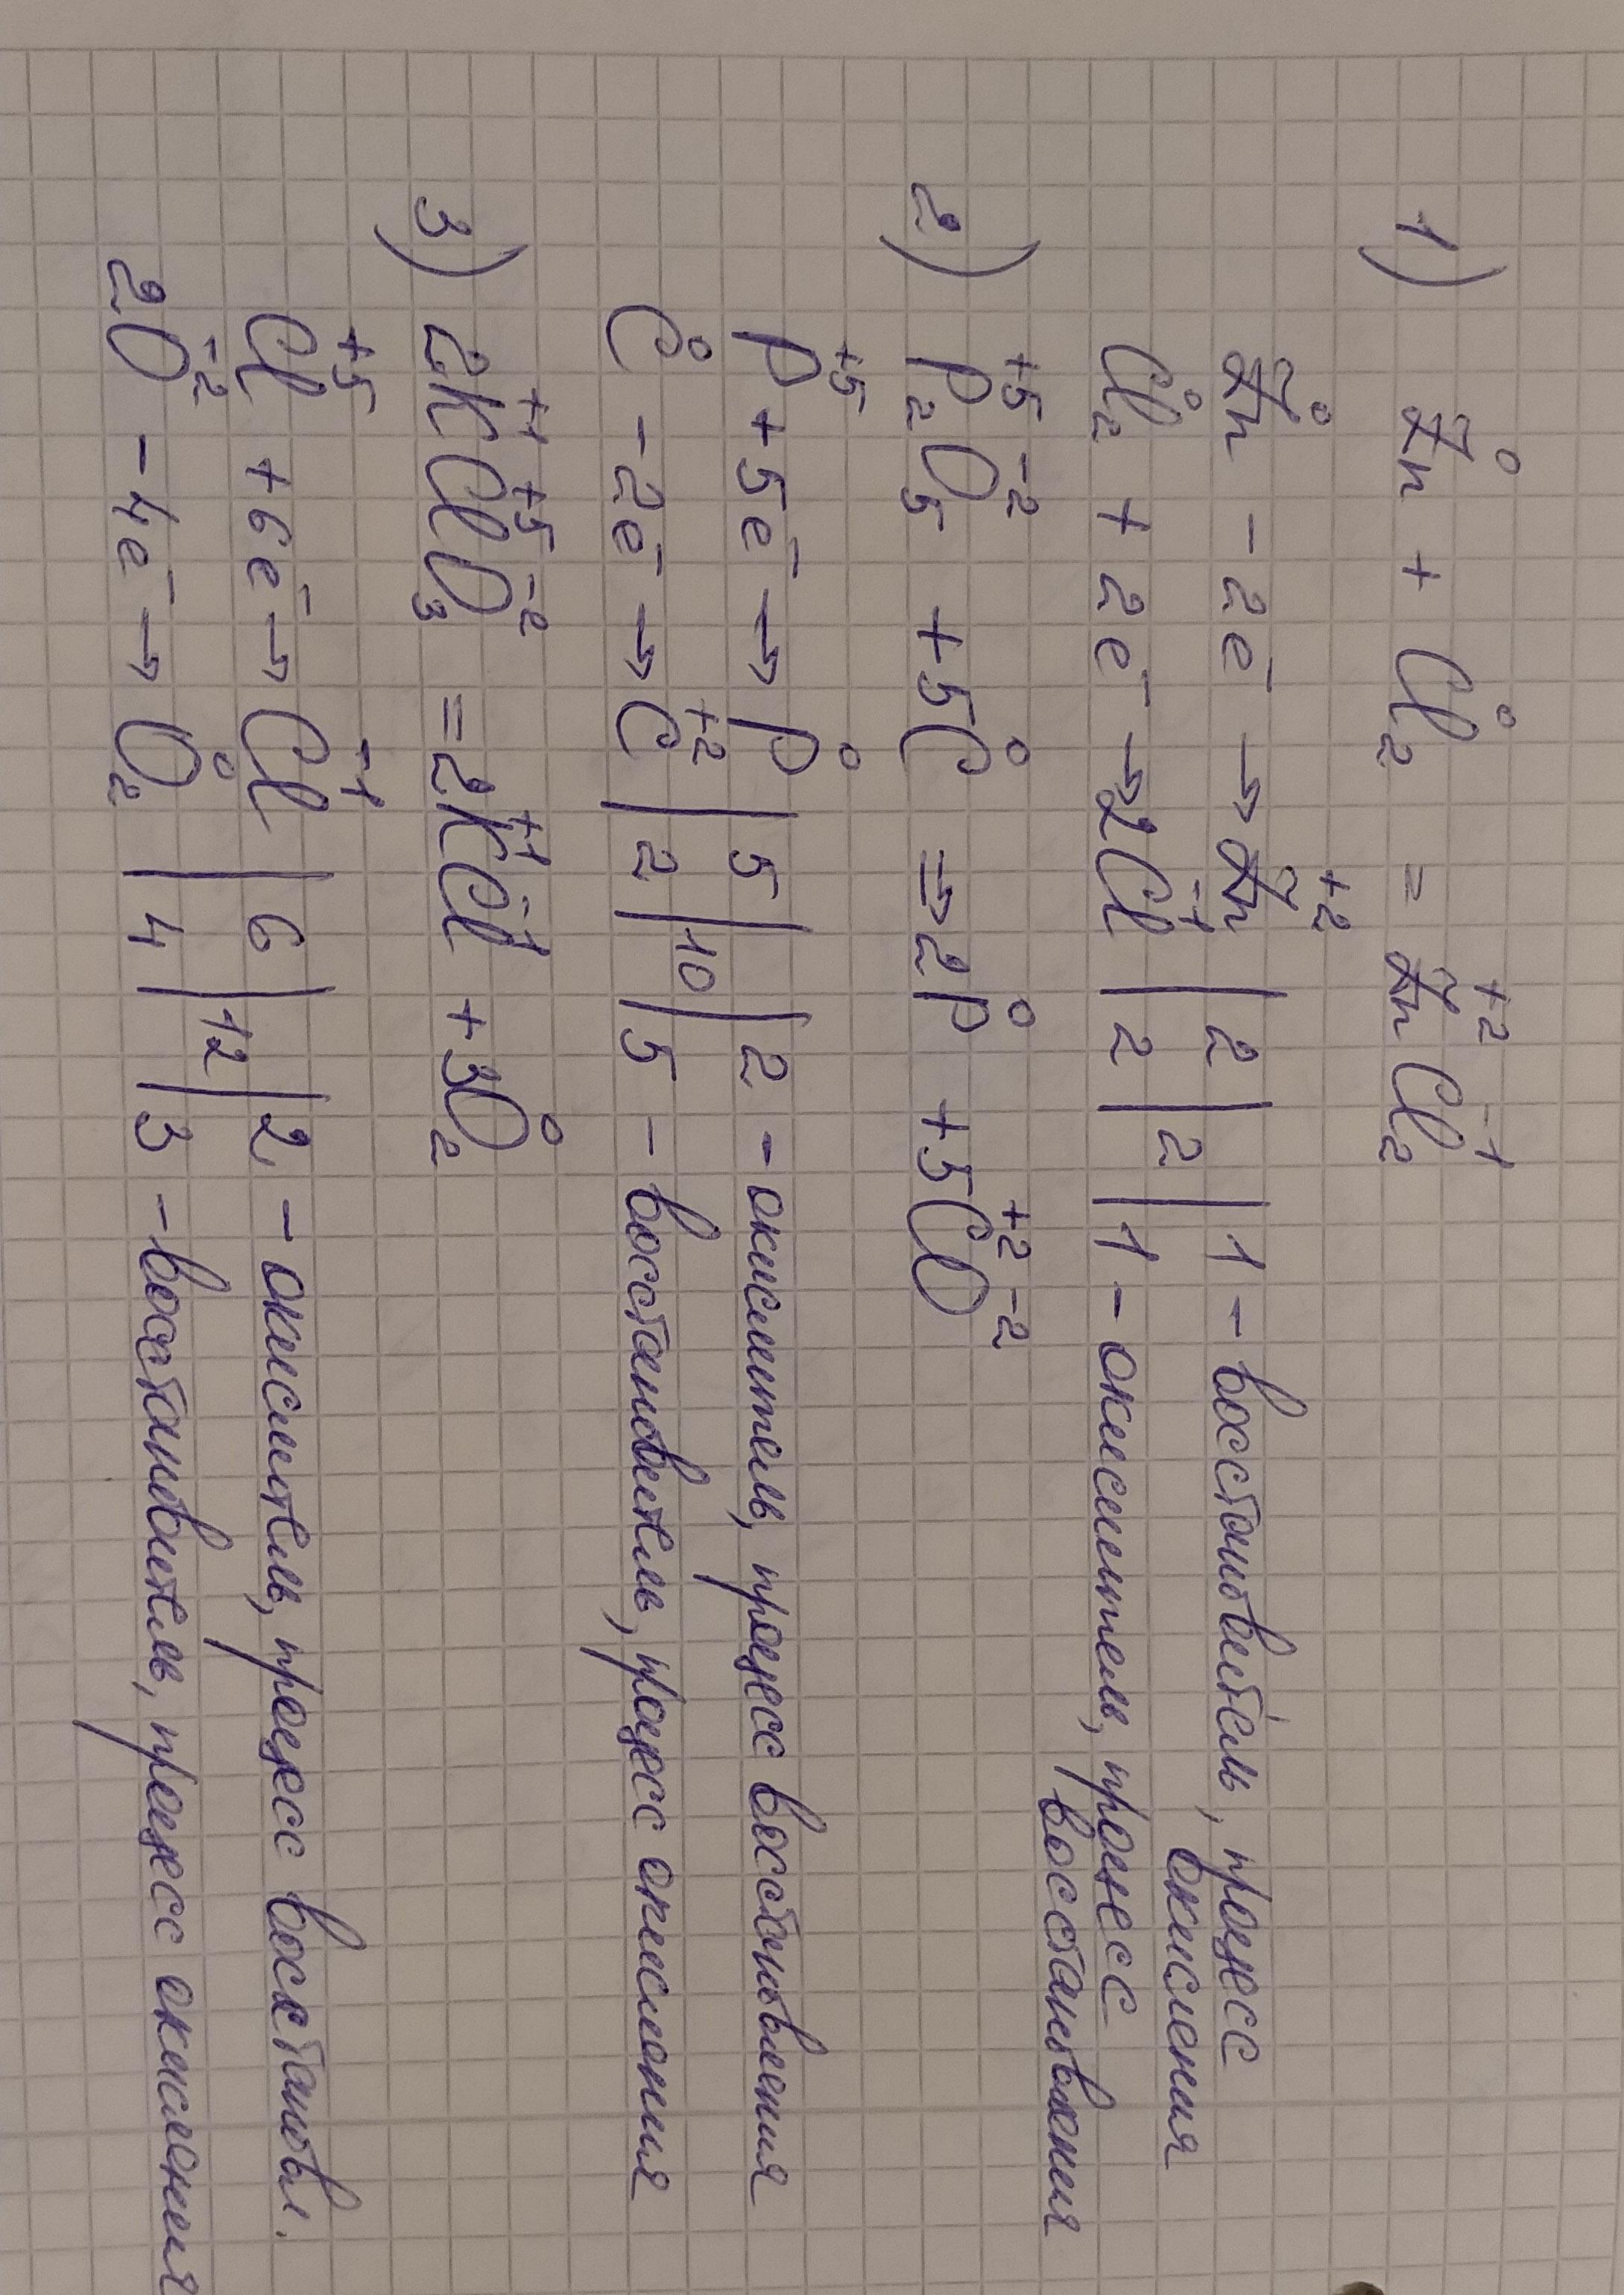 1) Zn⁰ + Cl₂⁰ = Zn⁺²Cl₂⁻¹
Zn⁰ - 2e⁻ → Zn⁺² | 2 | 2 | 1 - восстановитель, процесс окисления
Cl₂⁰ + 2e⁻ → 2Cl⁻¹ | 2 | 2 | 1 - окислитель, процесс восстановления
2) P₂⁺⁵O₅⁻² + 5C⁰ => 2P⁰ + 5C⁺²O⁻²
P⁺⁵ + 5e⁻ → P⁰ | 5 | 10 | 2 - окислитель, процесс восстановления
C⁰ - 2e⁻ → C⁺² | 2 | 10 | 5 - восстановитель, процесс окисления
3) 2K⁺¹Cl⁺⁵O₃⁻² = 2K⁺¹Cl⁻¹ + 3O₂⁰
Cl⁺⁵ + 6e⁻ → Cl⁻¹ | 6 | 12 | 2 - окислитель, процесс восстановл.
2O⁻² - 4e⁻ → O₂⁰ | 4 | 12 | 3 - восстановитель, процесс окисления